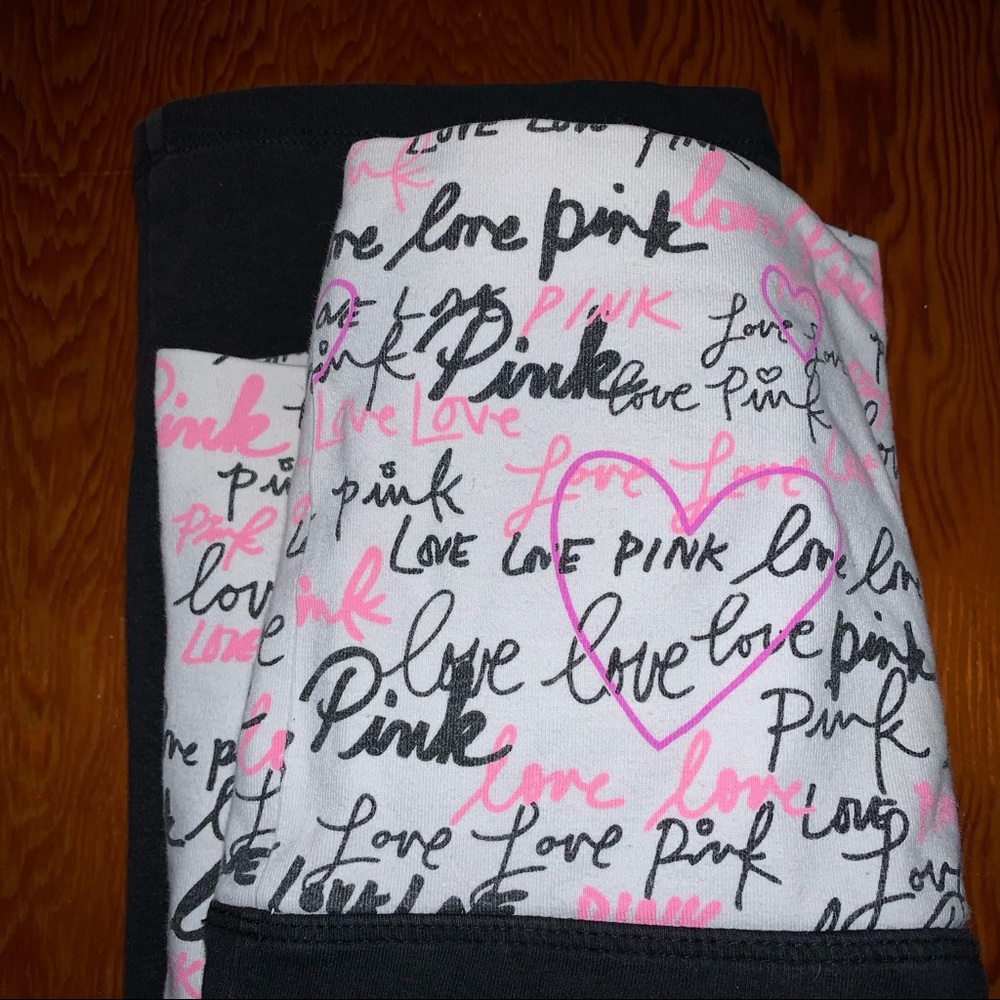 LOVE LOVE PINK
love pink love
LOVE PINK Love Love
Pink love Pink
Love Love
Pink pink Love Love
Pink LOVE LOVE PINK love love
love love love love pink
LOVE Pink Pink
love love
Love Love Pink LOVE
LOVE LOVE Love
PINK